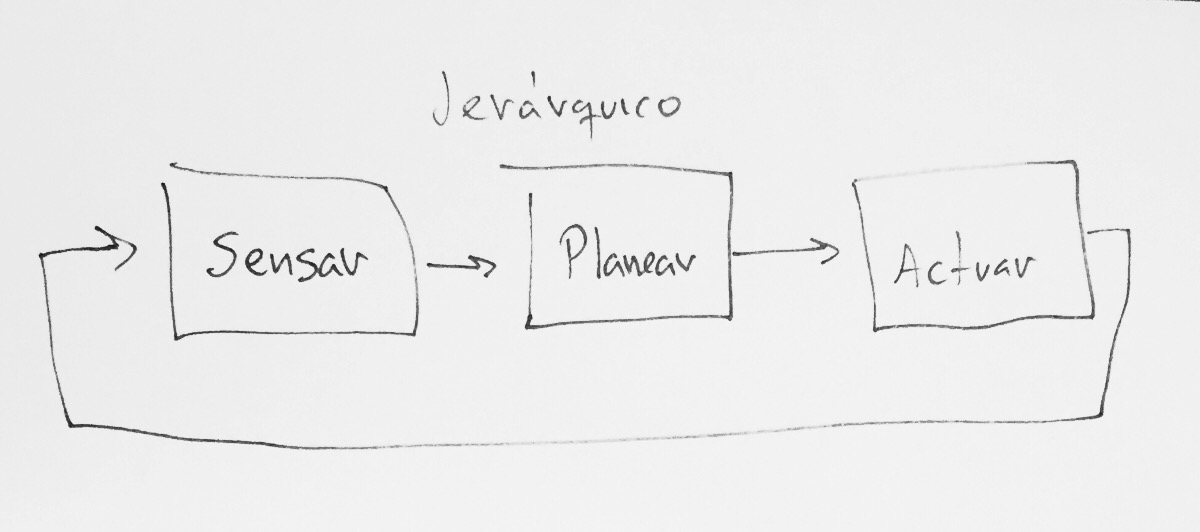 Jerárquico
Sensar
Planear
Actuar